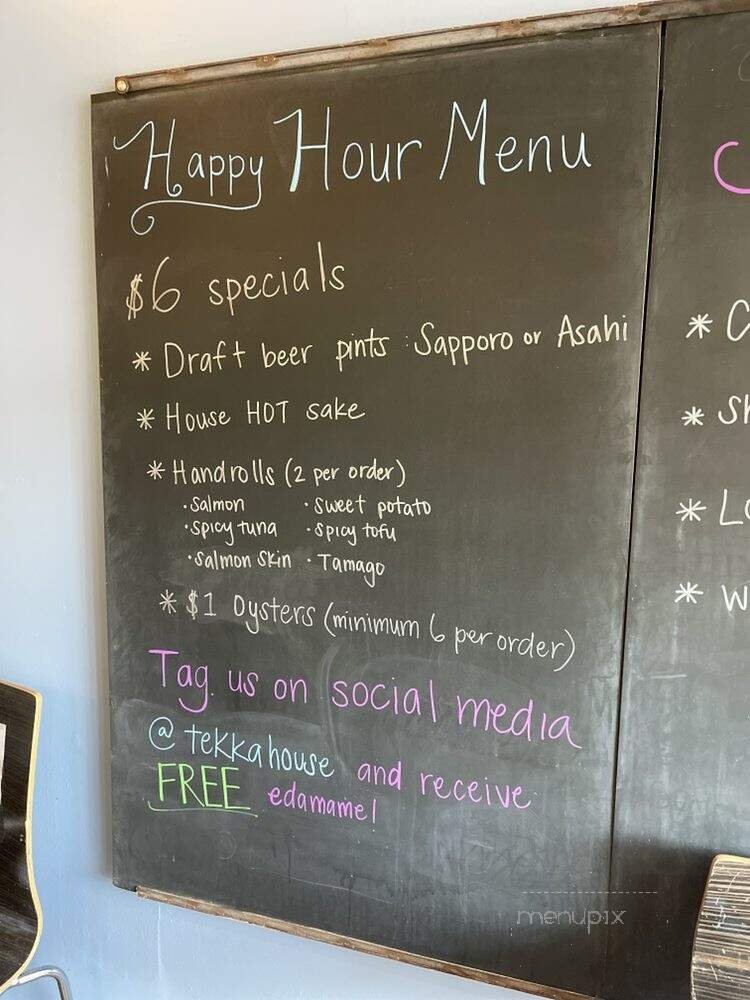 Happy Hour Menu
$6 specials
* Draft beer pints : Sapporo or Asahi
* House HOT sake
* Handrolls (2 per order)
• Salmon • Sweet potato
• Spicy tuna • Spicy tofu
• Salmon Skin • Tamago
* $1 Oysters (minimum 6 per order)
Tag us on social media
@tekkahouse and receive
FREE edamame!
menupix